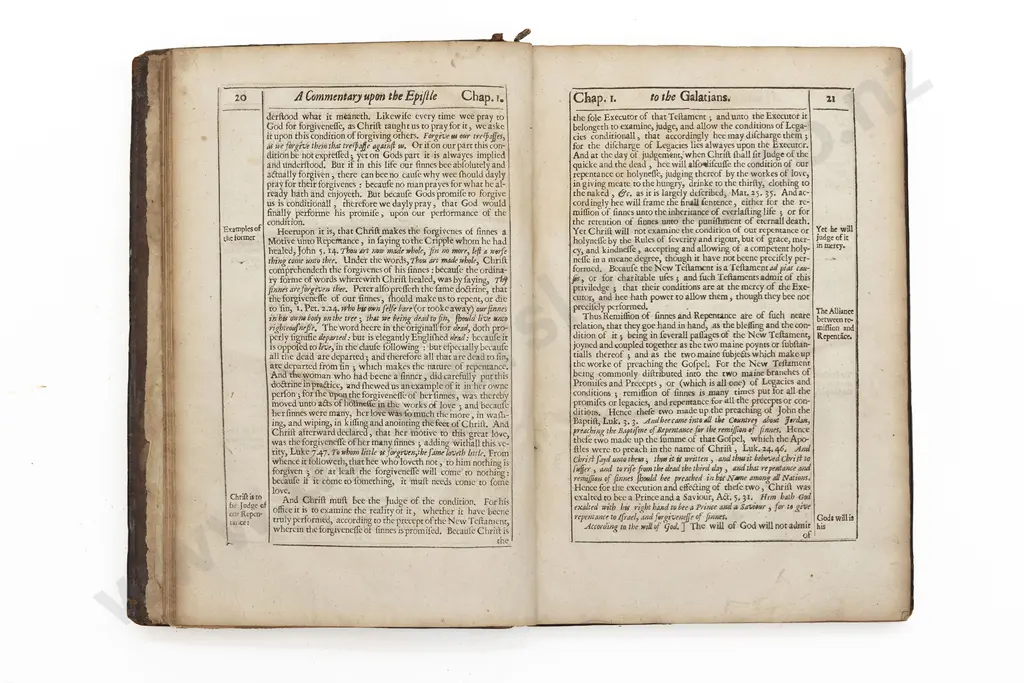 20
A Commentary upon the Epistle
Chap. 1.
derstood what it meaneth. Likewife every time wee pray to
God for forgivenesse, as Christ taught us to pray for it, we aske
it upon this condition of forgiving others. Forgive us our trespasses,
as we forgive them that trespasse against us. Or if on our part this con-
dition be not expressed; yet on Gods part it is alwayes implied
and understood. But if in this life our sinnes bee absolutely and
actually forgiven, there can bee no cause why wee should dayly
pray for their forgivenes: because no man prayes for what he al-
ready hath and enjoyeth. But because Gods promise to forgive
us is conditionall, therefore we dayly pray, that God would
finally performe his promise, upon our performance of the
condition.
Examples of
the former
Heerupon it is, that Christ makes the forgivenes of sinnes a
Motive unto Repentance, in saying to the Cripple whom he had
healed, John 5. 14. Thou art now made whole, sin no more, lest a worse
thing come unto thee. Under the words, Thou art made whole, Christ
comprehendeth the forgivenes of his sinnes: because the ordina-
ry forme of words where with Christ healed, was by saying, Thy
sinnes are forgiven thee. Peter also presseth the same doctrine, that
the forgivenesse of our sinnes, should make us to repent, or die
to sin, 1. Pet. 2.24. who his own selfe bare (or tooke away) our sinnes
in his own body on the tree; that we being dead to sin, should live unto
righteousnesse. The word heere in the originall for dead, doth pro-
perly signifie departed: but is elegantly Englished dead: because it
is opposed to live, in the clause following: but especially because
all the dead are departed; and therefore all that are dead to sin,
are departed from sin; which makes the nature of repentance.
And the woman who had beene a sinner, did carefully put this
doctrine in practice, and shewed us an example of it in her owne
person; for she upon the forgivenesse of her sinnes, was thereby
moved unto acts of holinesse in the works of love; and because
her sinnes were many, her love was so much the more, in wash-
ing, and wiping, in kissing and anointing the feet of Christ. And
Christ afterward declared, that her motive to this great love,
was the forgivenesse of her many sinnes; adding withall this ve-
rity, Luke 7.47. To whom little is forgiven, the same loveth little. From
whence it followeth, that hee who loveth not, to him nothing is
forgiven; or at least the forgivenesse will come to nothing:
because if it come to something, it must needs come to some
love.
Christ is to
be Judge of
our Repen-
tance:
And Christ must bee the Judge of the condition. For his
office it is to examine the reality of it, whether it have beene
truly performed, according to the precept of the New Testament,
wherein the forgivenesse of sinnes is promised. Because Christ is
the
Chap. 1.
to the Galatians.
21
the sole Executor of that Testament; and unto the Executor it
belongeth to examine, judge, and allow the conditions of Lega-
cies conditionall, that accordingly hee may discharge them;
for the discharge of Legacies lies alwayes upon the Executor.
And at the day of judgement, when Christ shall sit Judge of the
quicke and the dead, hee will also discusse the condition of our
repentance or holynesse, judging thereof by the workes of love,
in giving meate to the hungry, drinke to the thirsty, clothing to
the naked, &c. as it is largely described, Mat. 25. 35. And ac-
cordingly hee will frame the finall sentence, either for the re-
mission of sinnes unto the inheritance of everlasting life; or for
the retention of sinnes unto the punishment of eternall death.
Yet he will
judge of it
in mercy.
Yet Christ will not examine the condition of our repentance or
holynesse by the Rules of severity and rigour, but of grace, mer-
cy, and kindnesse, accepting and allowing of a competent holy-
nesse in a meane degree, though it have not beene precisely per-
formed. Because the New Testament is a Testament ad pias cau-
sas, or for charitable uses; and such Testaments admit of this
priviledge; that their conditions are at the mercy of the Exe-
cutor, and hee hath power to allow them, though they bee not
precisely performed.
The Alliance
between re-
mission and
Repentice.
Thus Remission of sinnes and Repentance are of such neare
relation, that they goe hand in hand, as the blessing and the con-
dition of it; being in severall passages of the New Testament,
joyned and coupled together as the two maine poynts or substan-
tialls thereof; and as the two maine subjects which make up
the worke of preaching the Gospel. For the New Testament
being commonly distributed into the two maine branches of
Promises and Precepts, or (which is all one) of Legacies and
conditions; remission of sinnes is many times put for all the
promises or legacies, and repentance for all the precepts or con-
ditions. Hence these two made up the preaching of John the
Baptist, Luk. 3. 3. And hee came into all the Countrey about Jordan,
preaching the Baptisme of Repentance for the remission of sinnes. Hence
these two made up the summe of that Gospel, which the Apo-
stles were to preach in the name of Christ; Luk. 24. 46. And
Christ sayd unto them, thus it is written, and thus it behoved Christ to
suffer, and to rise from the dead the third day, and that repentance and
remission of sinnes should bee preached in his Name among all Nations.
Hence for the execution and effecting of these two, Christ was
exalted to bee a Prince and a Saviour, Act. 5. 31. Him hath God
exalted with his right hand to bee a Prince and a Saviour, for to give
repentance to Israel, and forgivenesse of sinnes.
Gods will is
his
According to the will of God. ] The will of God will not admit
of